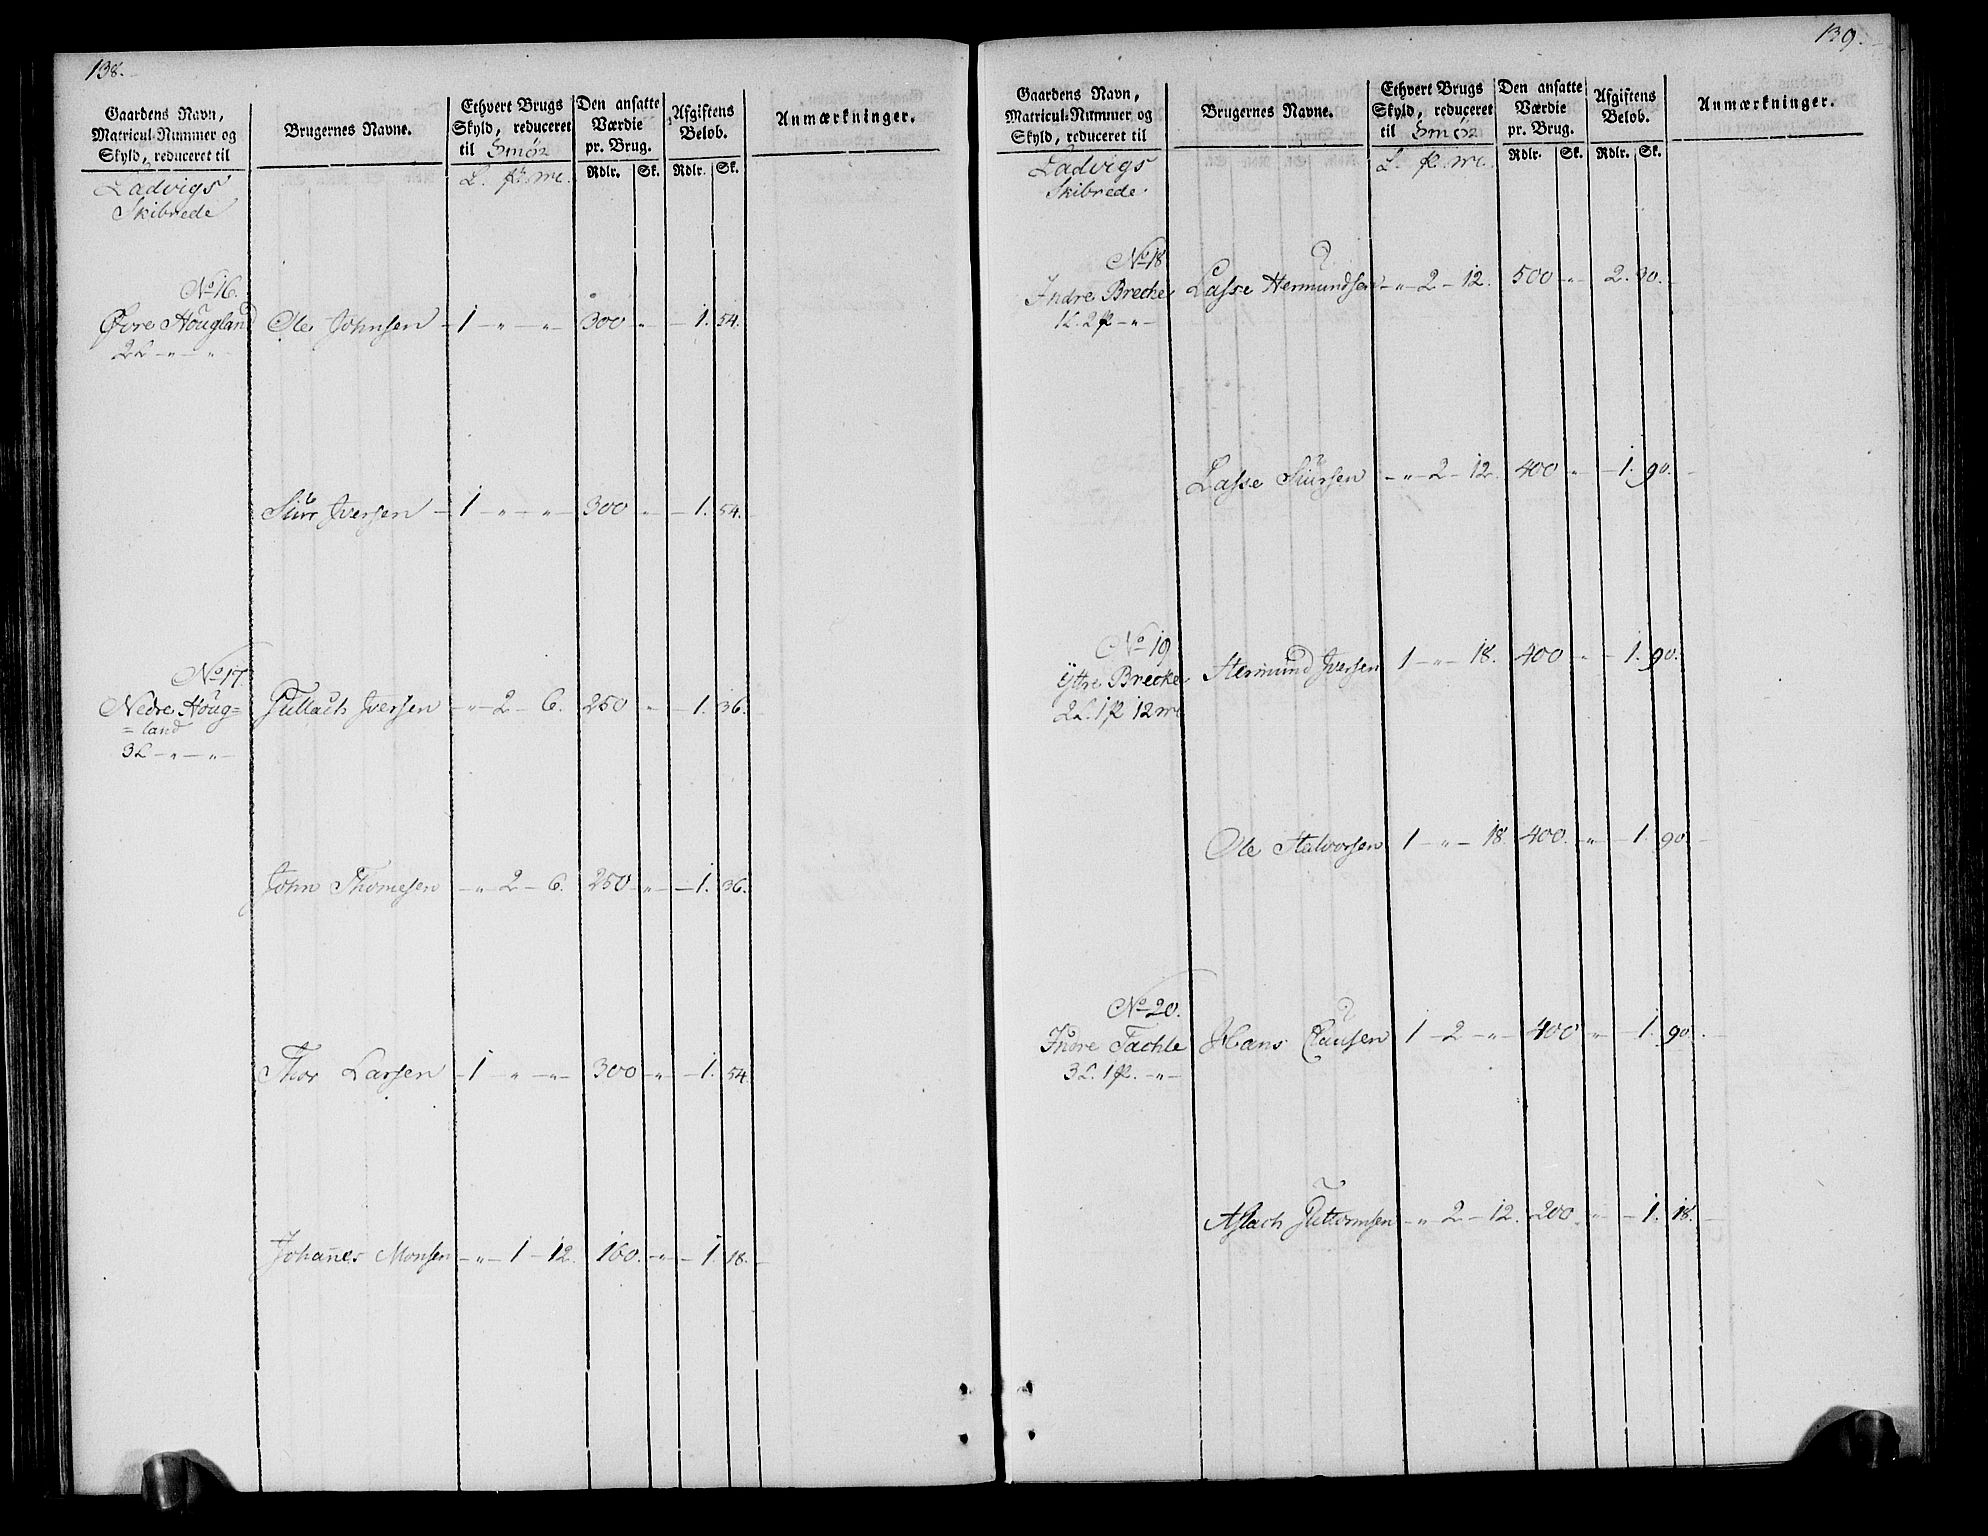 138.
Gaardens Navn, Matricul-Nummer og Skyld, reduceret til
Brugernes Navne.
Ethvert Brugs Skyld, reduceret til Smör
Den ansatte Værdie pr. Brug.
Afgiftens Beløb.
Anmærkninger.
Ladvigs Skibrede
L. pd. mc. Rdlr. Sk. Rdlr. Sk.
No 16.
Øvre Hougland Ole Johnsen - 1 - " - " - 300 " - 1. 54.
2 L - " - " -
Siur Iversen - 1 - " - " - 300 " - 1. 54.
No 17.
Nedre Houg= Iversen - " - 2 - 6. 250 " - 1. 36.
= land
3 L - " - " -
John Thomesen - " - 2 - 6. 250 - " - 1. 36.
Thor Larsen - 1 - " - " - 300 - " - 1. 54.
Johanes Monsen - " - 1 - 12. 160. - " - 1. 18.
139.
Gaardens Navn, Matricul-Nummer og Skyld, reduceret til
Brugernes Navne.
Ethvert Brugs Skyld, reduceret til Smör
Den ansatte Værdie pr. Brug.
Afgiftens Beløb.
Anmærkninger.
Ladvigs Skibrede
L. pd. mc. Rdlr. Sk. Rdlr. Sk.
No 18
Indre Brecke Lasse Hermundsen - " - 2 - 12. 500 " 2. 30.
1 L. 2 pd - " -
Lasse Siursen - " - 2 - 12. 400 " - 1. 90.
No 19
Yttre Brecke Hermund Iversen 1 - " - 18. 400 " - 1. 90.
2 L. 1 pd 12 mc
Ole Halvorsen 1 - " - 18. 400. " - 1. 90.
No 20.
Indre Tachle Hans Clausen 1 - 2 - " - 400 " - 1. 90.
3 L. 1 pd. - " -
Aslach Guttormsen - " 2 - 12. 200. " - 1. 18.